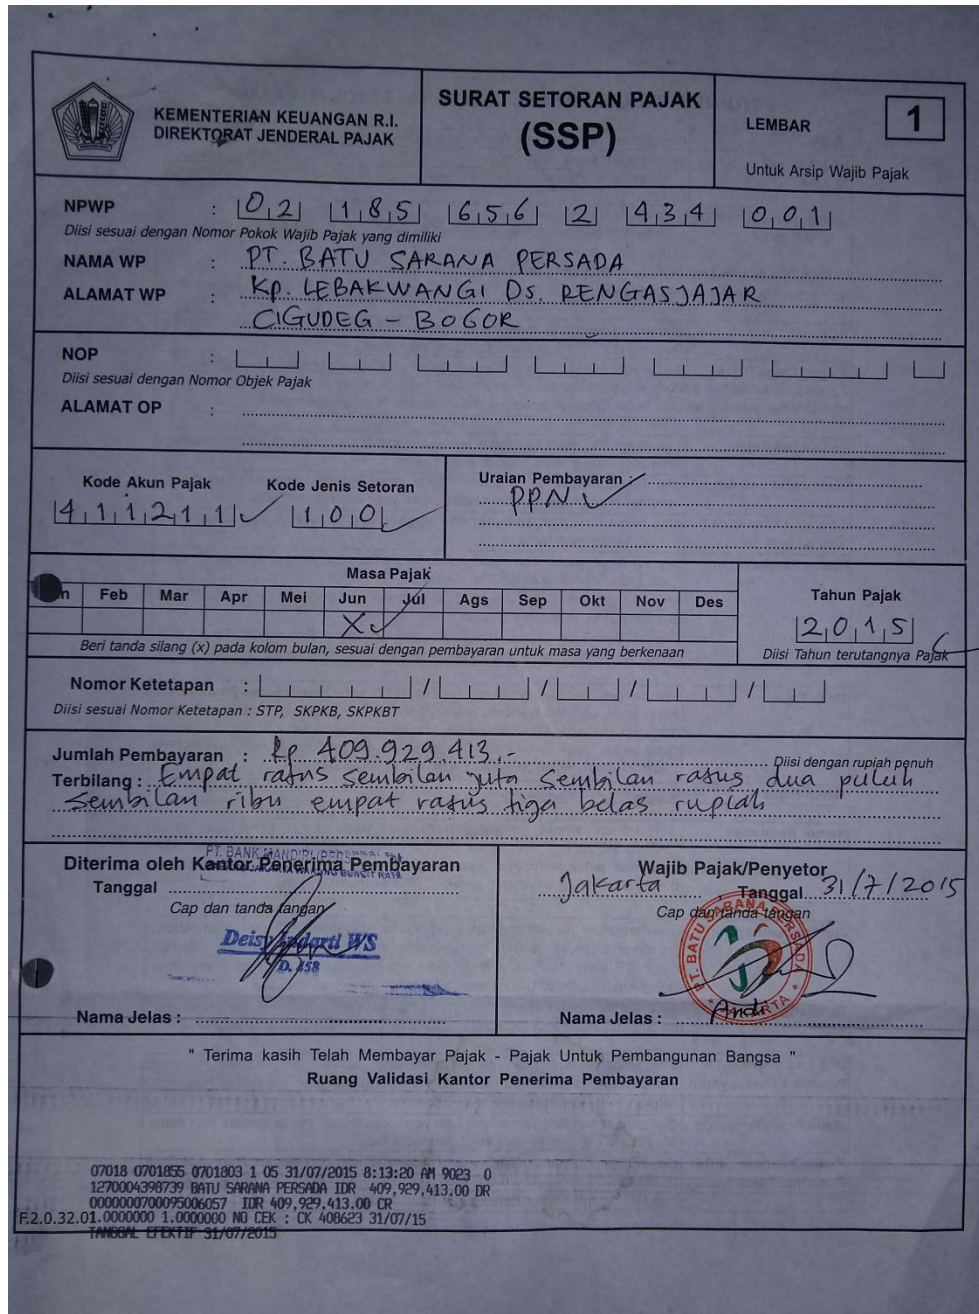 KEMENTERIAN KEUANGAN R.I.
DIREKTORAT JENDERAL PAJAK
SURAT SETORAN PAJAK
(SSP)
LEMBAR 1
Untuk Arsip Wajib Pajak
NPWP : 02 185 656 2 434 001
Diisi sesuai dengan Nomor Pokok Wajib Pajak yang dimiliki
NAMA WP : PT. BATU SARANA PERSADA
ALAMAT WP : Kp. LEBAKWANGI Ds. RENGASJAJAR
CIGUDEG - BOGOR
NOP :
Diisi sesuai dengan Nomor Objek Pajak
ALAMAT OP :
Kode Akun Pajak Kode Jenis Setoran
411211 100
Uraian Pembayaran :
PPN
Masa Pajak
Feb Mar Apr Mei Jun Jul Ags Sep Okt Nov Des
X
Beri tanda silang (x) pada kolom bulan, sesuai dengan pembayaran untuk masa yang berkenaan
Tahun Pajak
2015
Diisi Tahun terutangnya Pajak
Nomor Ketetapan : / / / /
Diisi sesuai Nomor Ketetapan : STP, SKPKB, SKPKBT
Jumlah Pembayaran : Rp 409.929.413.- Diisi dengan rupiah penuh
Terbilang : Empat ratus sembilan juta sembilan ratus dua puluh
sembilan ribu empat ratus tiga belas rupiah
Diterima oleh Kantor Penerima Pembayaran
PT. BANK MANDIRI
Tanggal
Cap dan tanda tangan
Deisy Indarti WS
D. 458
Nama Jelas :
Wajib Pajak/Penyetor
Jakarta Tanggal 31/7/2015
Cap dan tanda tangan
PT. BATU SARANA PERSADA
JAKARTA
Nama Jelas : Andi
" Terima kasih Telah Membayar Pajak - Pajak Untuk Pembangunan Bangsa "
Ruang Validasi Kantor Penerima Pembayaran
07018 0701855 0701803 1 05 31/07/2015 8:13:20 AM 9023 0
1270004398739 BATU SARANA PERSADA IDR 409,929,413.00 DR
0000000700095006057 IDR 409,929,413.00 CR
F.2.0.32.01.0000000 1.0000000 NO CEK : CK 408623 31/07/15
TANGGAL EFEKTIF 31/07/2015